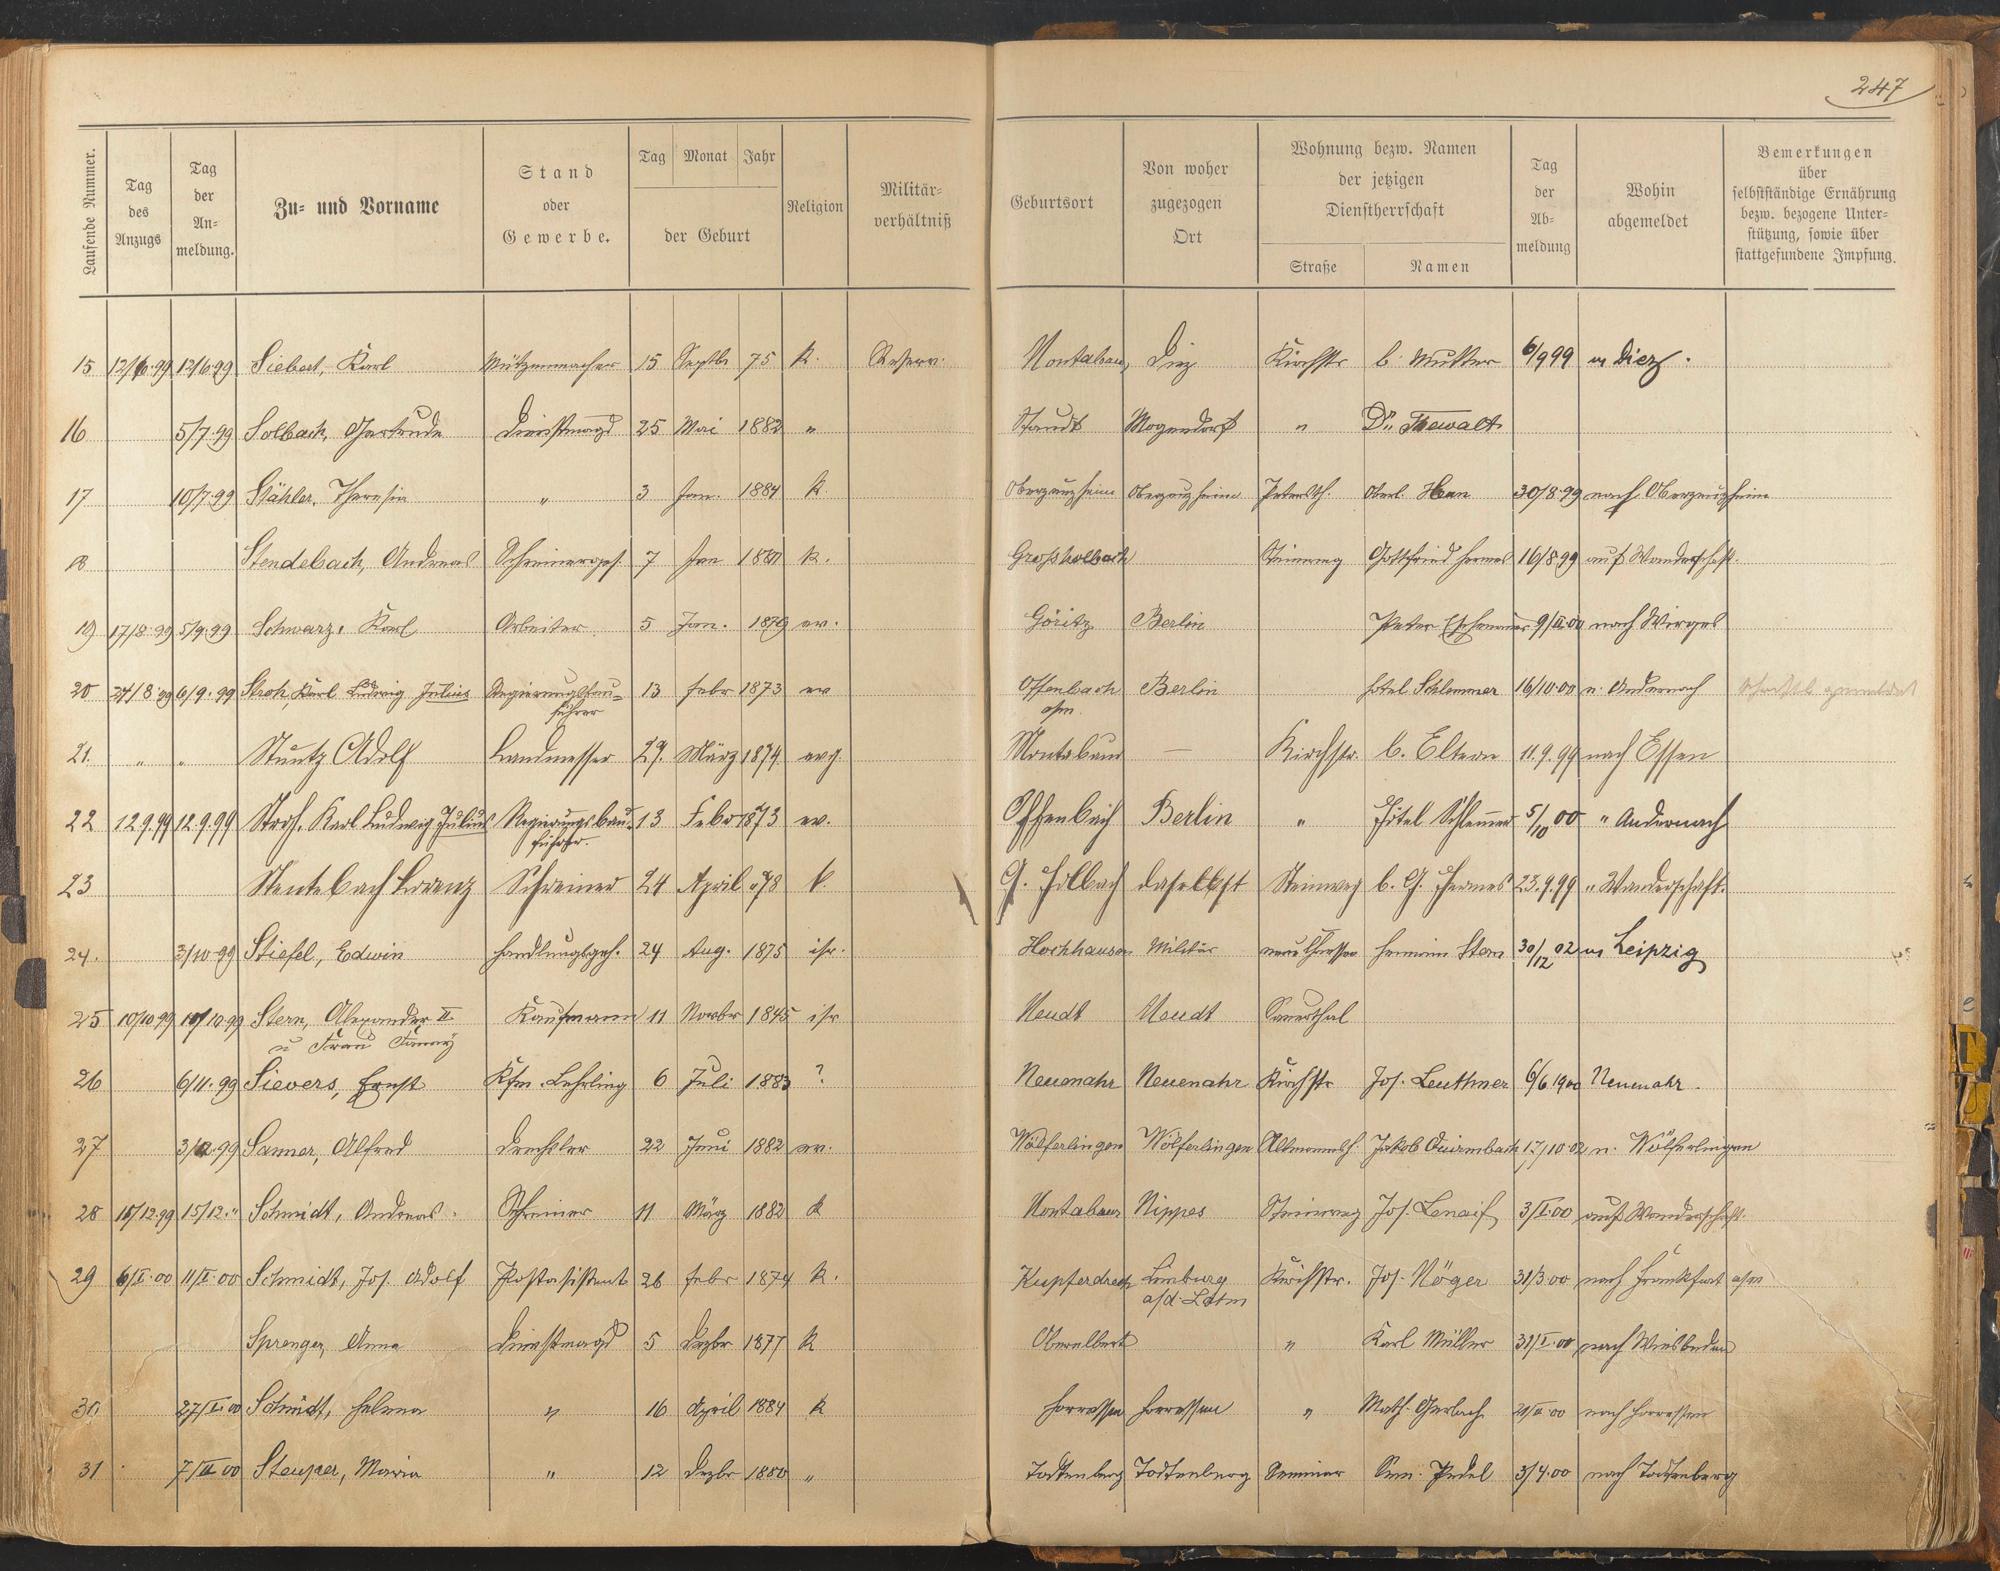 247
Laufende Nummer.
Tag des Anzugs
Tag der An- meldung.
Zu- und Vorname
Stand oder Gewerbe.
Tag Monat Jahr
der Geburt
Religion
Militär- verhältniß
Geburtsort
Von woher zugezogen Ort
Wohnung bezw. Namen der jetzigen Dienstherrschaft
Straße Namen
Tag der Ab- meldung
Wohin abgemeldet
Bemerkungen
über
selbstständige Ernährung
bezw. bezogene Unter-
stützung, sowie über
stattgefundene Impfung.
15 12/6.99 12/6.99 Siebert, Karl Mützenmacher 15 Septbr 75 k. Reserv. Montabaur Diez Kirchstr b. Mutter 6/9 99 n Diez.
16 5/7.99 Solbach, Gertrude Dienstmagd 25 Mai 1882 " Staudt Mogendorf " Dr. Thewalt
17 10/7.99 Stähler, Theresia " 3 Jan. 1884 k. Oberzeuzheim Oberzeuzheim Oberl. 30/8.99 nach Oberzeuzheim
18 Stendebach, Andreas Schreinerges. 7 Jan k. Grossholbach Steinweg Gottfried Hermes 16/8 99 auf Wanderschaft.
19 17/8.99 5/9.99 Schwarz, Karl Arbeiter 5 Jan. 1879 ev. Göritz Berlin Peter 9/II.00 nach Wirges
20 27/8.99 6/9.99 Stroh, Karl Ludwig Julius Regierungsbau=
führer 13 Febr 1873 ev Offenbach
a/m. Berlin Hotel Schlemmer 16/10.00 n. Andernach
21. " " Stuntz Adolf Landmesser 29. März 1874. evg. Montabaur — Kirchstr. b. Eltern 11.9.99 nach Essen
22 12.9.99 12.9.99 Stroh, Karl Ludwig Julius Regierungsbau-
führer. 13 Febr 1873 ev. Offenbach Berlin " Hotel Schlemmer 5/10 00 " Andernach
23 Stentebach Lorenz Schreiner 24 April 78 k. G. Holbach daselbst Steinweg b. G. Hermes 23.9.99 " Wanderschaft.
24. 3/10.99 Stiefel, Edwin Handlungsgeh. 24 Aug. 1875 isr. Hochhausen Militär Hermann Stern 30/12 02 n Leipzig
25 10/10.99 10/10.99 Stern, Alexander II
u Frau Fanny Kaufmann 11 Novbr 1845 isr Meudt Meudt Sauerthal
26 6/11.99 Sievers, Ernst Kfm. Lehrling 6 Juli 1883 ? Neuenahr Neuenahr Kirchstr Jos. Leuthner 6/6 1900 Neuenahr.
27 Sanner, Alfred Drechsler 22 Juni 1882 ev. Wölferlingen Wölferlingen Jakob Quirmbach 17/10.02 n. Wölferlingen
28 15/12.99 15/12." Schmidt, Andreas. Schreiner 11 März 1882 k Montabaur Nippes Steinweg Jos. 3/I.00 auf Wanderschaft.
29 6/I.00 11/I.00 Schmidt, Jos. Adolf Postassistent 26 Febr 1874 k. Kupferdreh Limburg
a/d. Lahn Kirchstr. Jos. Nöger 31/3.00 nach Frankfurt a/m
Sprenger, Anna Dienstmagd 5 Dezbr 1877 k Oberelbert " Karl Müller 31/I.00 nach Wiesbaden
30 27/I.00 Schmidt, Helena " 16 April 1884 k Horressen Horressen " Math. Gerlach nach Horressen
31 7/II 00 Steuper, Maria " 12 Dezbr 1880 " Todtenberg Todtenberg Seminar Sem. Pedel 3/4.00 nach Todtenberg